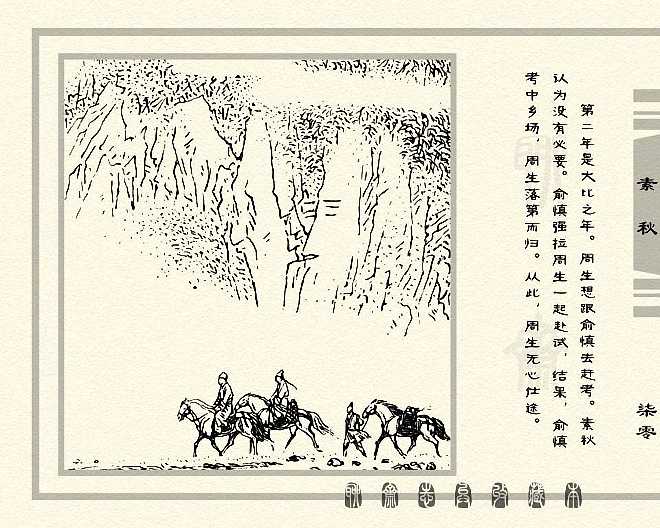 第二年是大比之年。周生想跟俞慎去赶考。素秋
认为没有必要。俞慎强拉周生一起赴试，结果，俞慎
考中乡场，周生落第而归。从此，周生无心仕途。
素秋
柒零